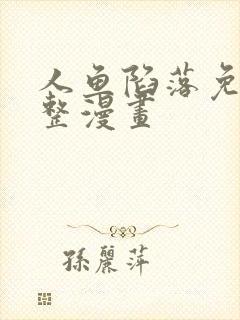 人鱼陷落免
整漫畫
孫麗萍